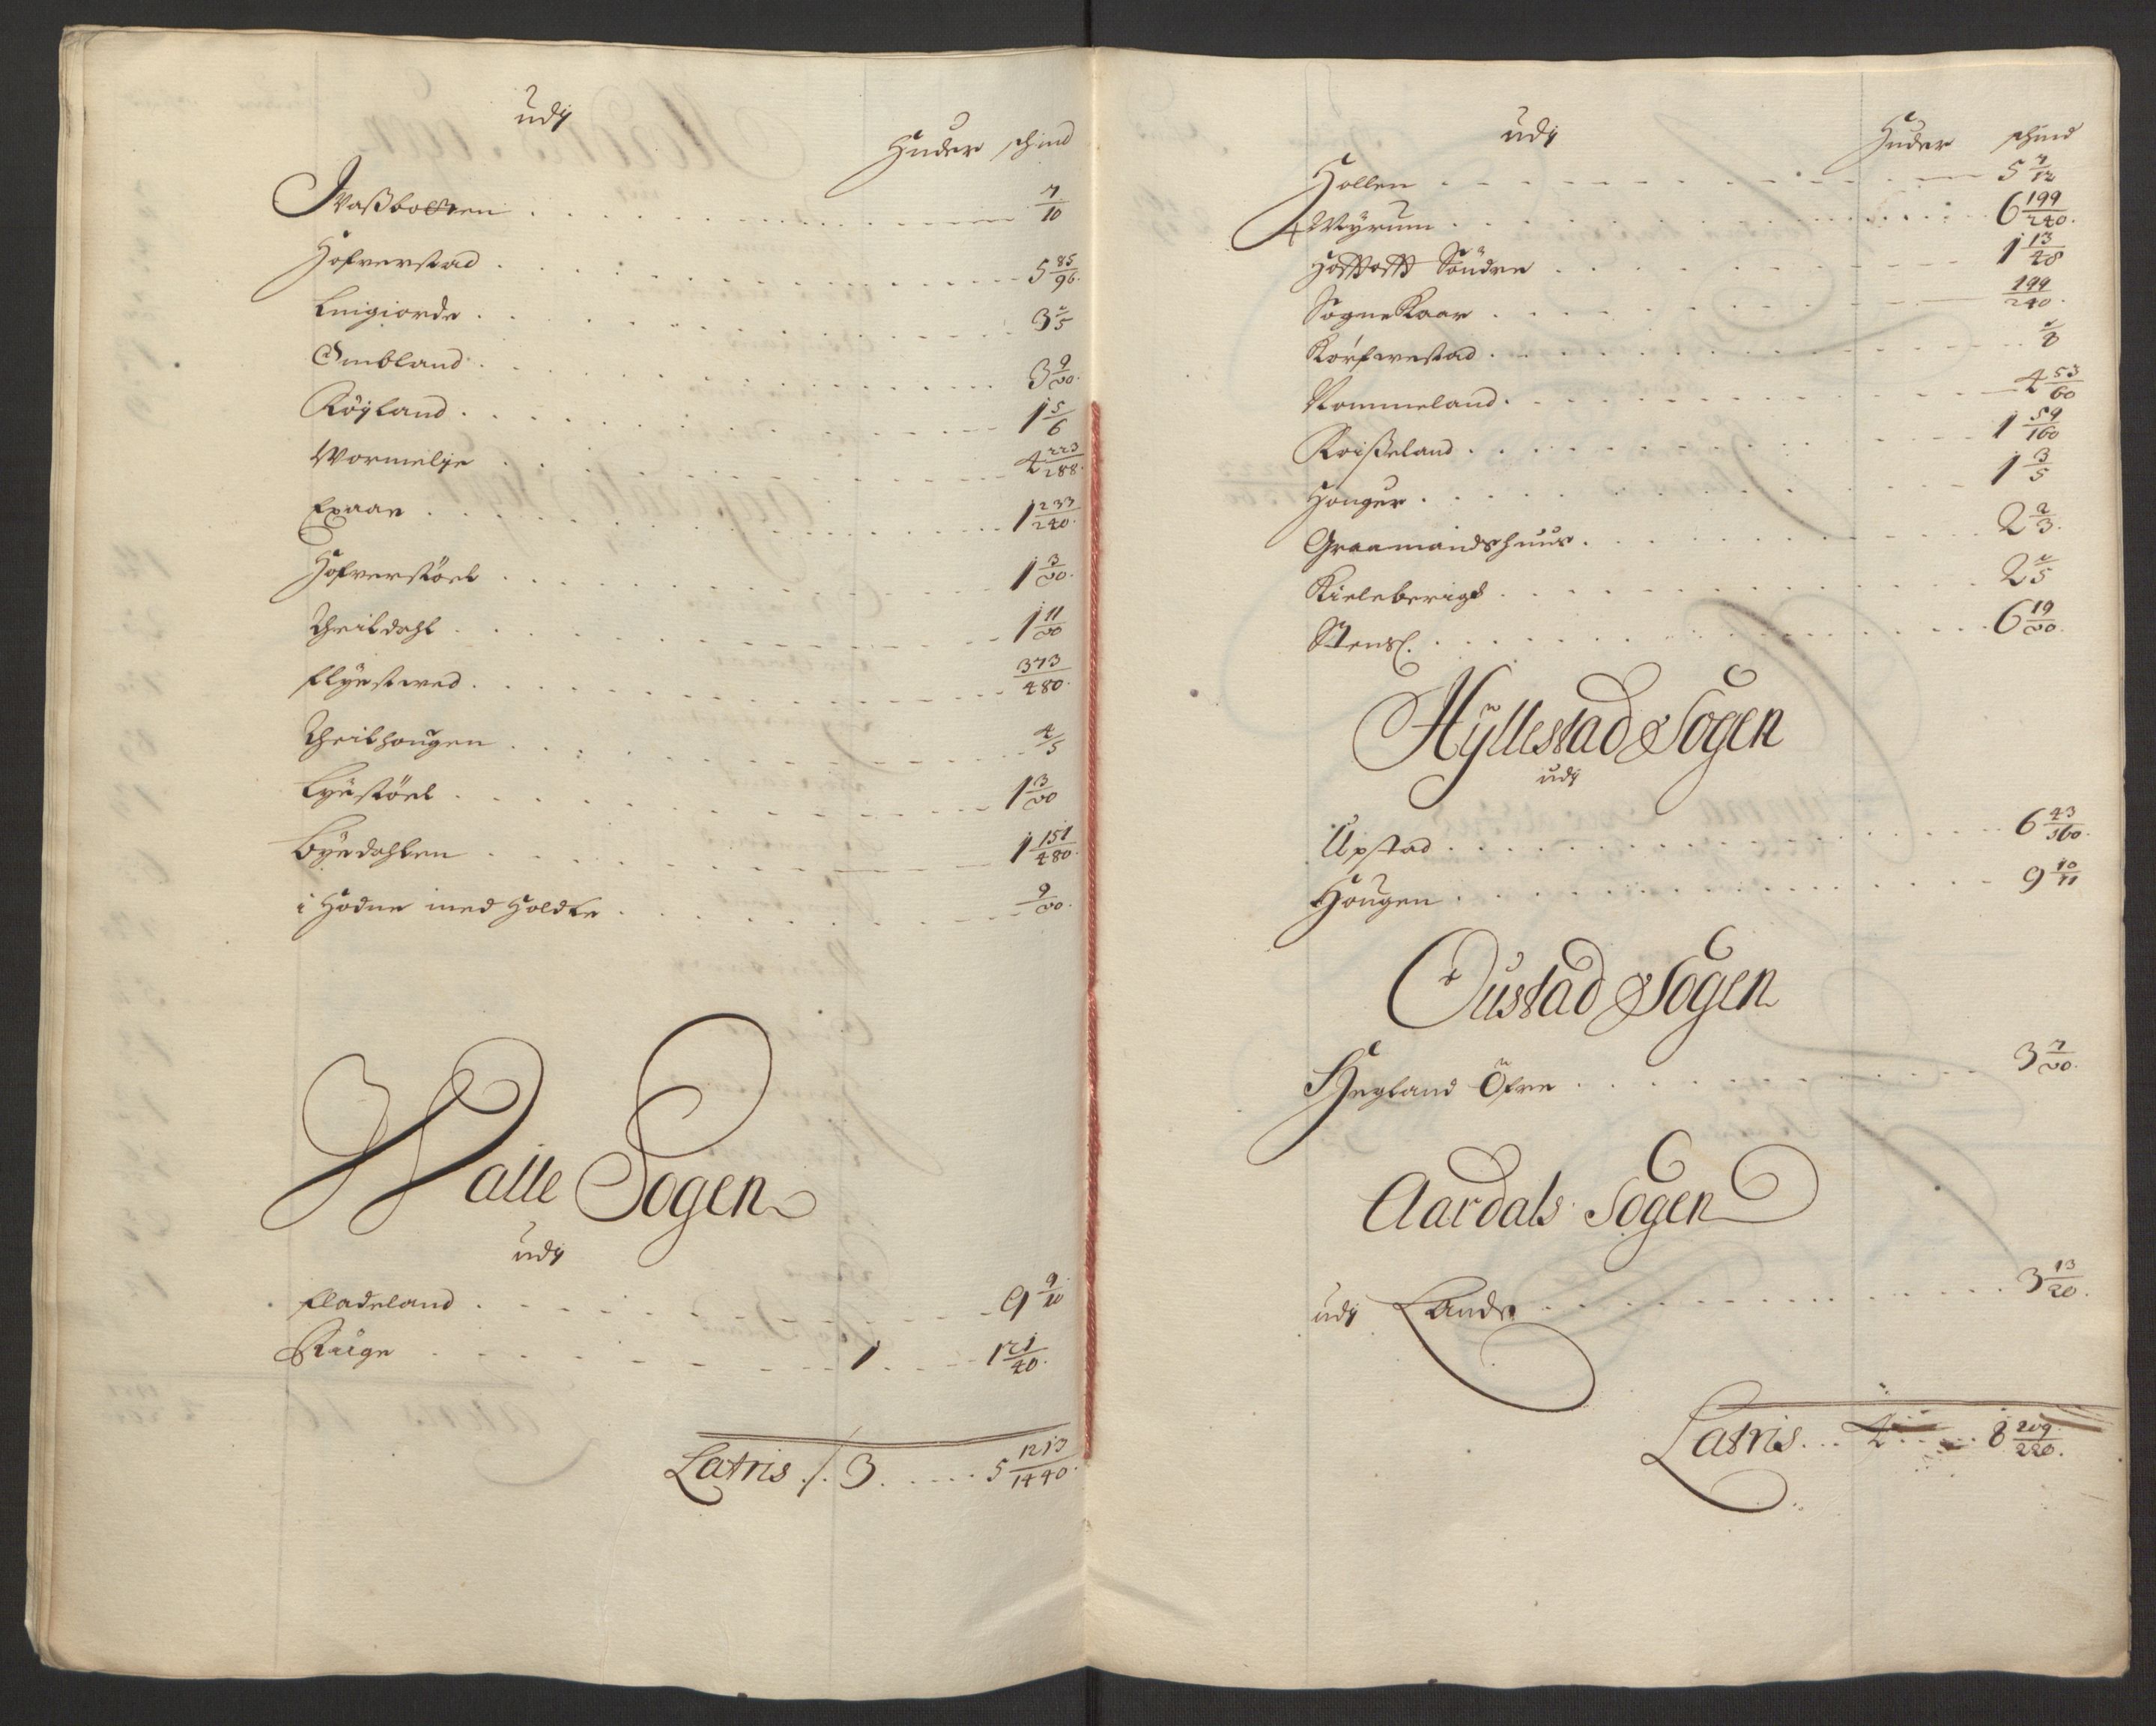 udj
Huder schind
Waßbotten 7/10
Hofverstad 5 85/96.
Leigiorde 3 2/5
Ombland 3 9/20.
Röyland 1 5/6
Wormelje 4 223/288.
Exaar 1 233/240.
Hofverstöel 1 3/20.
Theildahl 1 11/20
flyestved 373/480.
Theilhougen 4/5
Lyestöel 1 13/20
Byedahlen 1 151/480.
i Hodne med Holdte 9/20.
Walle Sogen
udj
fladeland 9 9/20
Rige 1 1 21/40.
Latris ./. 3 5 1213/1440.
udj
Huder schind
Hollen 5 7/12
Myrum 6 199/240.
Hofftofft Söndre 1 13/48
Sogneskaar 199/240.
Körfvestad
Nommeland 4 53/60
Roißeland 1 59/160
Honger 1 3/5
Graamandshuus 2 2/3.
Kieleberigh 2 2/5
Stensl. 6 19/20.
Hyllestad Sogen
udj
Upstad 6 43/360.
Hougen 9 10/11
Oustad Sogen
Hegland Öfre 3 7/20.
Aardals Sogen
udj Lande 3 13/20.
Latris 4 8 209/220.